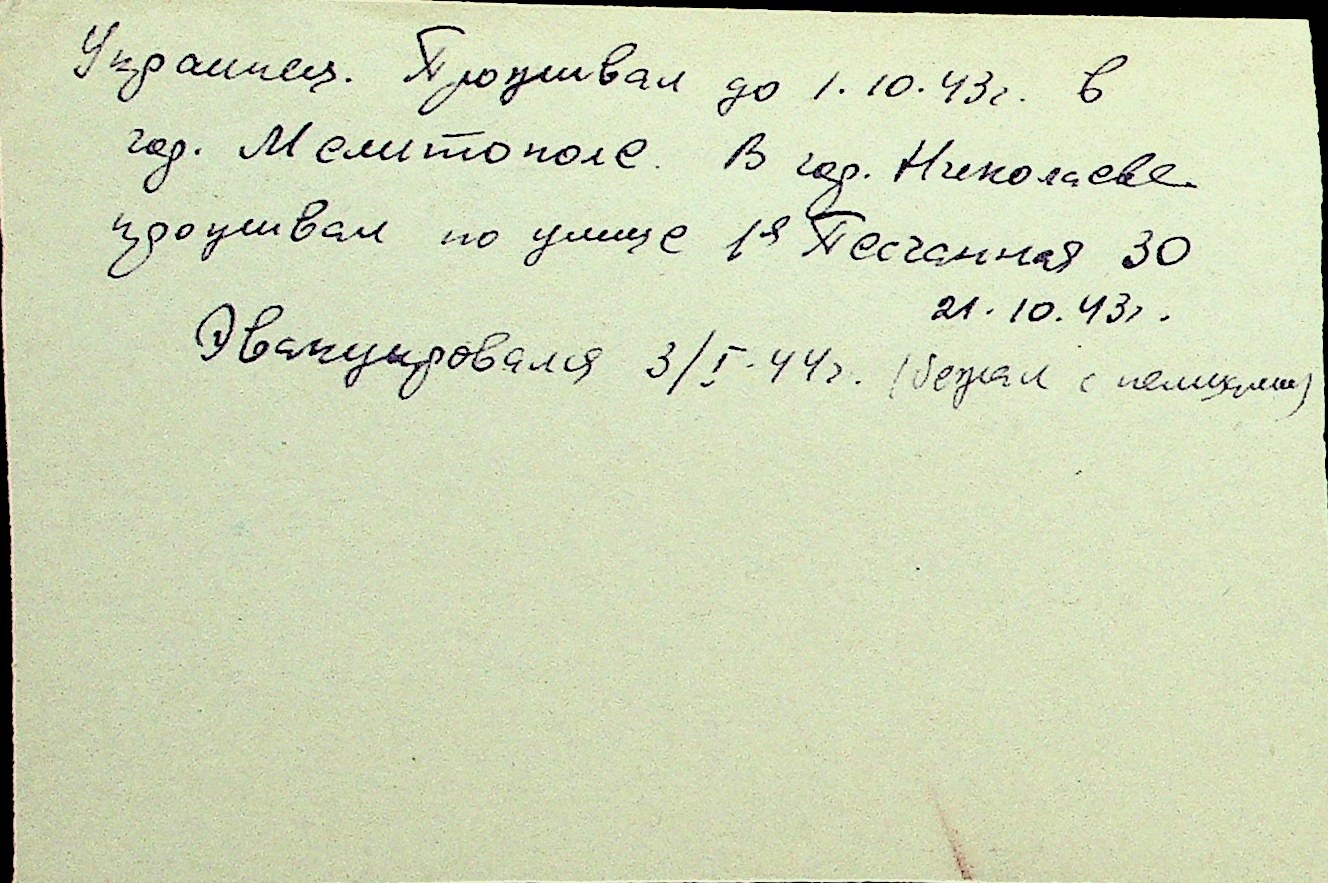 Украинец. Проживал до 1.10.43г. в
гор. Мелитополе. В гор. Николаеве
проживал по улице 1я Песчанная 30
21.10.43г.
Эвакуировался 3/I-44г. (бежал с немцами)